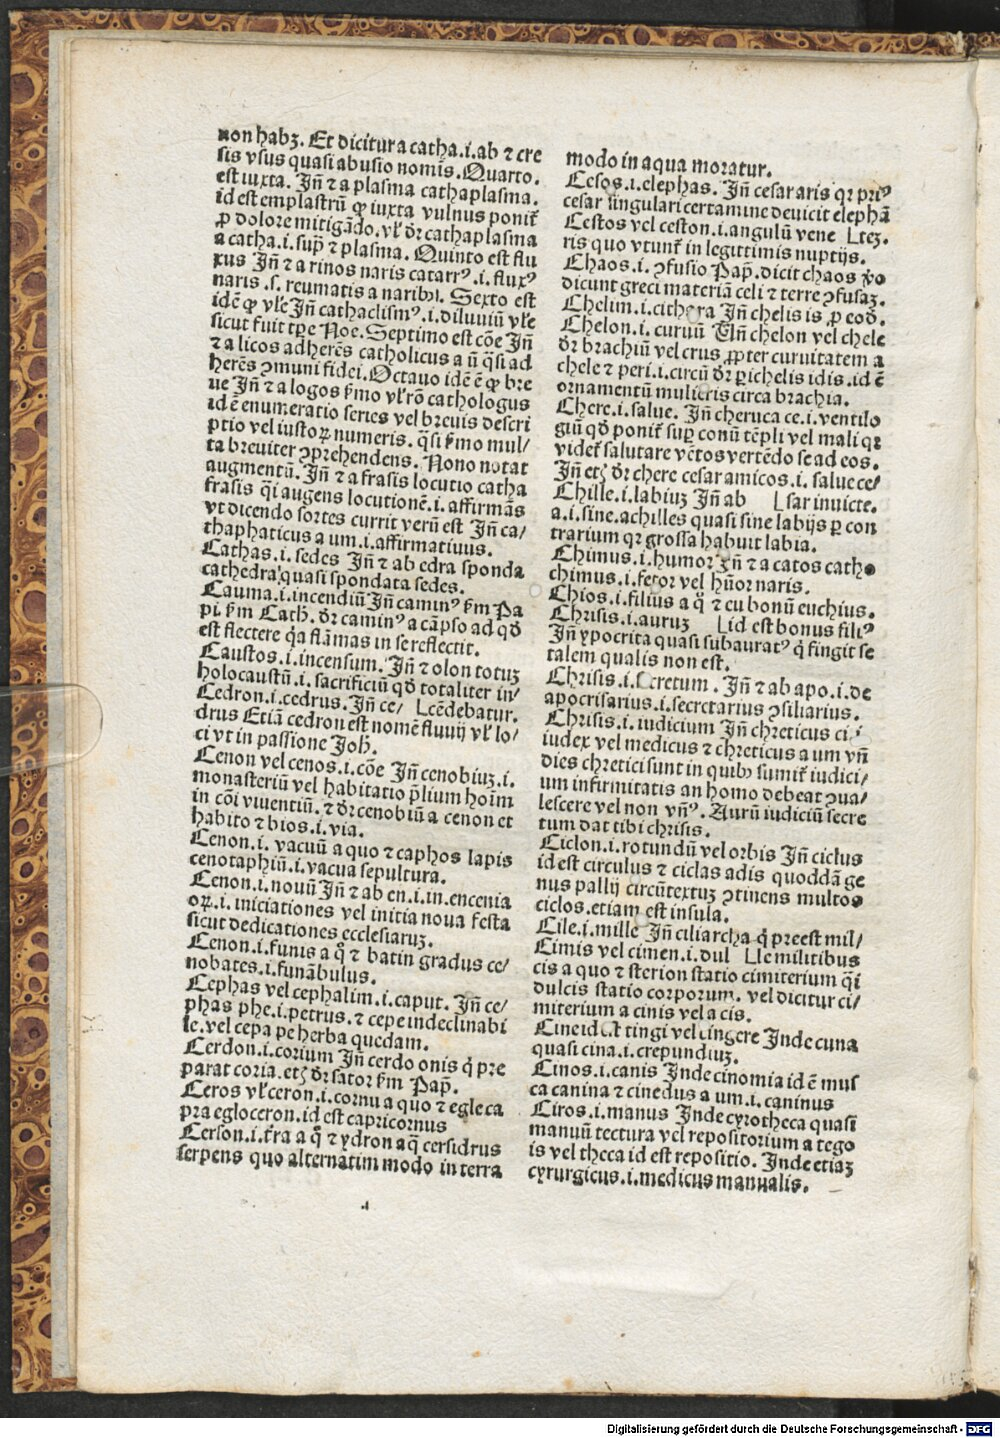 non habꝫ. Et dicitur a catha.i.ab ⁊ cre
sis vsus quasi abusio nomĩs. Quarto.
est iuxta. Iñ ⁊ a plasma cathaplasma.
id est emplastrũ ꝙ iuxta vulnus poniť
ꝓ dolore mitigãdo. vľ ðr cathaplasma
a catha.i.sup̃ ⁊ plasma. Quinto est flu
xus Iñ ⁊ a rinos naris catarrꝰ.i.fluxꝰ
naris.s.reumatis a naribꝫ. Sexto est
idẽ ꝙ vľe Iñ cathaclismꝰ.i.diluuiũ vľe
sicut fuit tp̃e Noe. Septimo est cõe Iñ
⁊ a licos adherẽs catholicus a ũ q̃si ad
herẽs ꝯmuni fidei. Octauo idẽ ẽ ꝙ bre
ue Iñ ⁊ a logos ẜmo vľ rõ cathologus
id ẽ enumeratio series vel breuis descri
ptio vel iustoꝝ numeris. q̃si ẜmo mul/
ta breuiter ꝯprehendens. Nono notat
augmentũ. Iñ ⁊ a frasis locutio catha
frasis q̃i augens locutionẽ.i.affirmãs
vt dicendo sortes currit verũ est Iñ ca/
thaphaticus a um.i.affirmatiuus.
Cathas.i.sedes Iñ ⁊ ab edra sponda
cathedra quasi spondata sedes.
Cauma.i.incendiũ Iñ caminꝰ ẜm Pa
pi. ẜm Cath. ðr caminꝰ a cãpso as qð
est flectere q̃a flãmas in se reflectit.
Caustos.i.incensum. Iñ ⁊ olon totuꝫ
holocaustũ.i.sacrificiũ qð totaliter in/
Cedron.i.cedrus. Iñ ce/ ⌊cẽdebatur.
drus Etiã cedron est nomẽ fluuij vľ lo/
ci vt in passione Joh̃.
Cenon vel cenos.i.cõe Iñ cenobiuꝫ.i.
monasteriũ vel habitatio p̃lium hoĩm
in cõi viuentiũ. ⁊ ðr cenobiũ a cenon et
habito ⁊ bios.i.via.
Cenon.i. vacuũ a quo ⁊ caphos lapis
cenotaphiũ.i.vacua sepultura.
Cenon.i.nouũ Iñ ⁊ ab en.i.in.encenia
oꝝ.i. iniciationes vel initia noua festa
sicut dedicationes ecclesiaruꝫ.
Cenon.i.funis a q̊ ⁊ batin gradus ce/
nobates.i.funãbulus.
Cephas vel cephalim.i.caput. Iñ ce/
phas phe.i.petrus.⁊ cepe indeclinabi
le.vel cepa pe herba quedam.
Cerdon.i.corium Iñ cerdo onis q̇ pre
parat coria.etꝫ ðr sator ẜm Pap̃.
Ceros vľ ceron.i.cornu a quo ⁊ egle ca
pra egloceron.id est capricornus
Cerson.i.ťra a q̊ ⁊ ydron aq̃ cersidrus
serpens quo alternatim modo in terra
modo in aqua moratur.
Cesos.i.elephas. Iñ cesar aris qꝛ priꝰ
cesar singulari certamine deuicit elephã
Cestos vel ceston.i.angulũ vene ⌊teꝫ.
ris quo vtunť in legittimis nuptijs.
Chaos.i. ꝯfusio Pap̃.dicit chaos ꝟo
dicunt greci materiã celi ⁊ terre ꝯfusaꝫ.
Chelim.i.cithera Iñ chelis is ꝓ eoð.
Chelon.i. curuũ Vñ chelon vel chele
ðr brachiũ vel crus ꝓpter curuitatem a
chele ⁊ peri.i.circũ ðr ꝑichelis idis.id ẽ
ornamentũ mulieris circa brachia.
Chere.i.salue. Iñ cheruca ce.i.ventilo
giũ qð poniť sup̃ conũ tẽpli vel mali qꝛ
videť salutare vẽtos vertẽdo se ad eos.
Iñ etꝫ ðr chere cesar amicos.i. salue ce/
Chille.i.labiuꝫ Iñ ab ⌊sar inuicte.
a.i.sine.achilles quasi sine labijs ꝑ con
trarium qꝛ grossa habuit labia.
Chimus.i.humor Iñ ⁊ a catos catho
chimus.i.fetor vel hũor naris.
Chios.i.filius a q̊ ⁊ eu bonũ euchius.
Chrisis.i.auruꝫ ⌊id est bonus filiꝰ
Iñ ypocrita quasi subauratꝰ q̇ fingit se
talem qualis non est.
Chrisis.i.secretum. Iñ ⁊ ab apo.i.de
apocrisarius.i.secretarius ꝯsiliarius.
Chrisis.i. iudicium Iñ chreticus ci.i
iudex vel medicus ⁊ chreticus a um vñ
dies chretici sunt in quibꝰ sumiť iudici/
um infirmitatis an homo debeat ꝯua/
lescere vel non vñꝰ. Aurũ iudiciũ secre
tum dat tibi chrisis.
Ciclon.i.rotundũ vel orbis Iñ ciclus
id est circulus ⁊ ciclas adis quoddã ge
nus pallij circũtextuꝫ ꝯtinens multos
ciclos.etiam est insula.
Cile.i.mille Iñ ciliarcha q̇ preest mil/
Cimis vel cimen.i.dul ⌊le militibus
cis a quo ⁊ sterion statio cimiterium q̃i
dulcis statio corporum. vel dicitur ci/
miterium a cinis vel a cis.
Cine id est tingi vel cingere Inde cuna
quasi cina.i.crepundiuꝫ.
Cinos.i.canis Inde cinomia id ẽ mus
ca canina ⁊ cinedus a um.i. caninus
Ciros.i.manus Inde cyrotheca quasi
manuũ tectura vel repositorium a tego
is vel theca id est repositio. Inde etiaꝫ
cyrurgicus.i.medicus manualis.
Digitalisierung gefördert durch die Deutsche Forschungsgemeinschaft - DFG